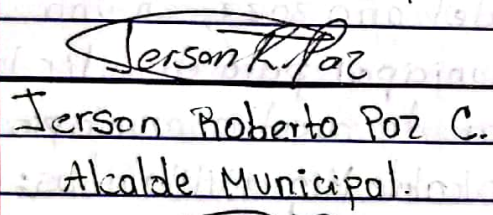 Jerson R. Paz
Jerson Roberto Paz C.
Alcalde Municipal.